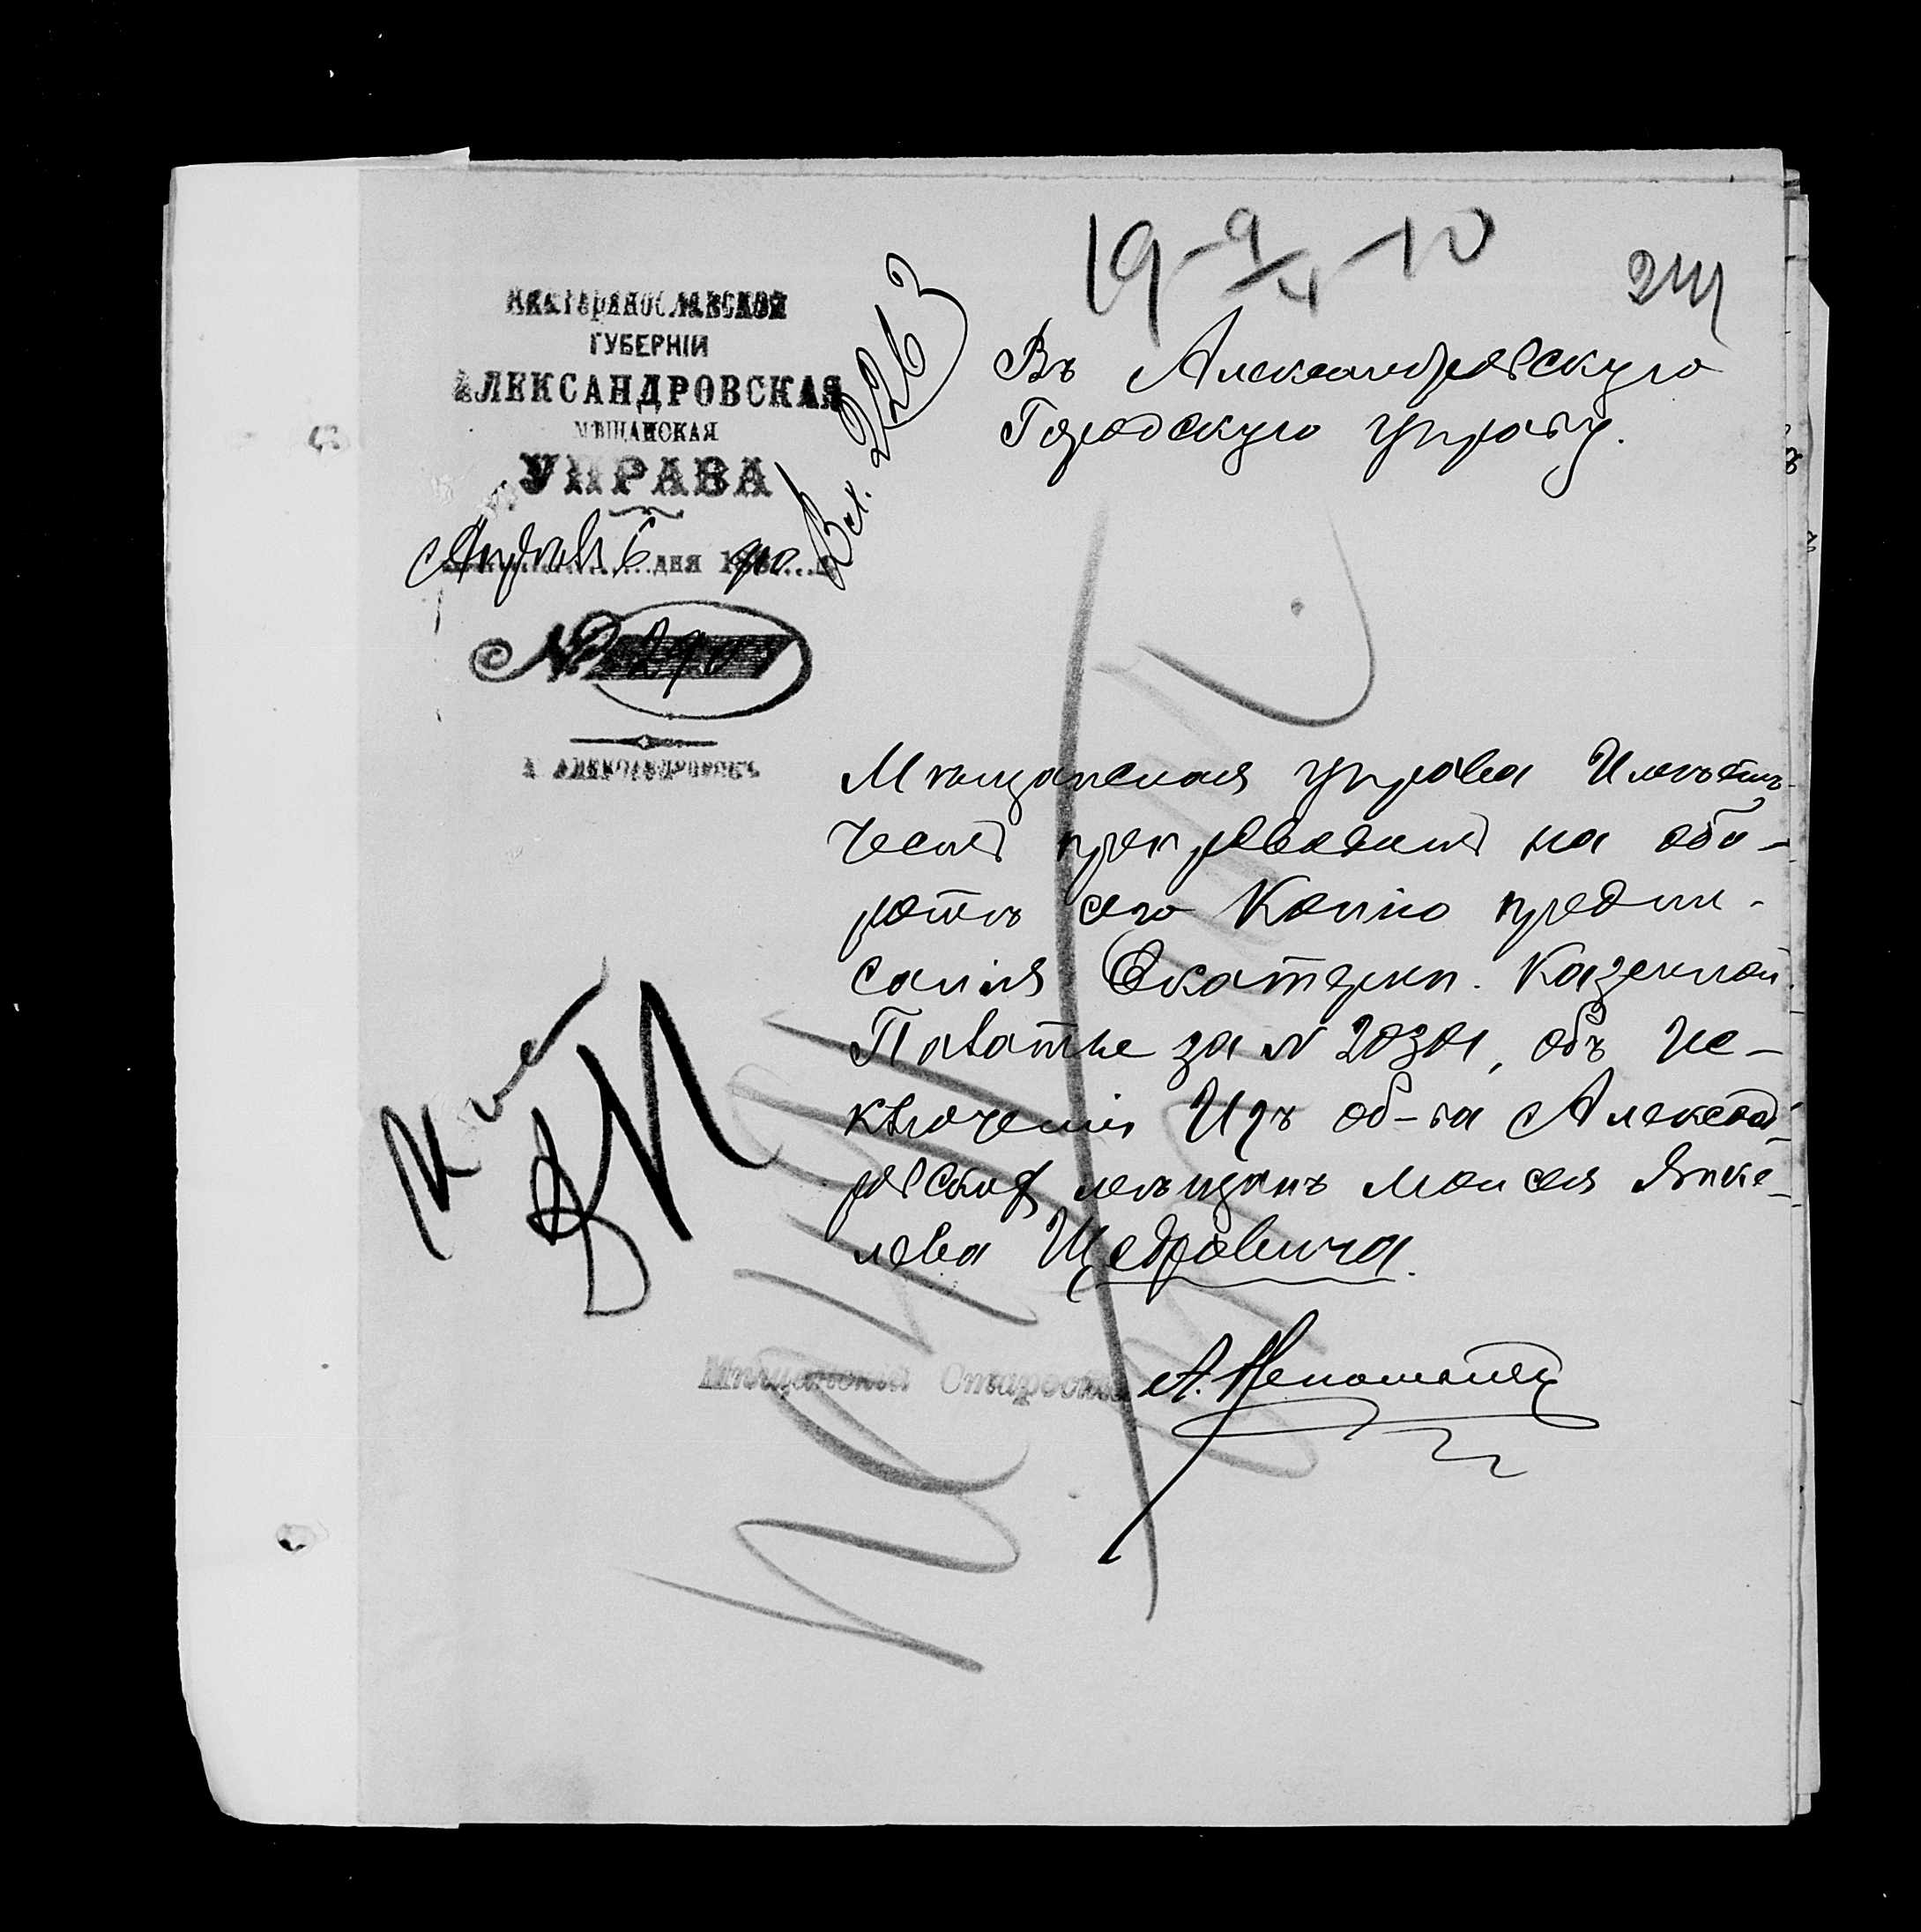 19-9/IV-10
244
ЕКАТЕРИНОСЛАВСКОЙ
ГУБЕРНІИ
АЛЕКСАНДРОВСКАЯ
МѢЩАНСКАЯ
УПРАВА
Апрѣля 6 дня 1910 г.
№
г. АЛЕКСАНДРОВСКЪ
Вх. 2263
Въ Александровскую
Городскую управу.
Мѣщанская управа Имѣетъ
честь препроводить на обо-
ротѣ сего Копію предпи-
санія Екатерин. Казенной
Палаты за № 20301, объ Ис-
ключеніи Изъ об-ва Александ-
ровских мѣщанъ Моисея Янке-
лева Щедровича.
Мѣщанскій Староста А.